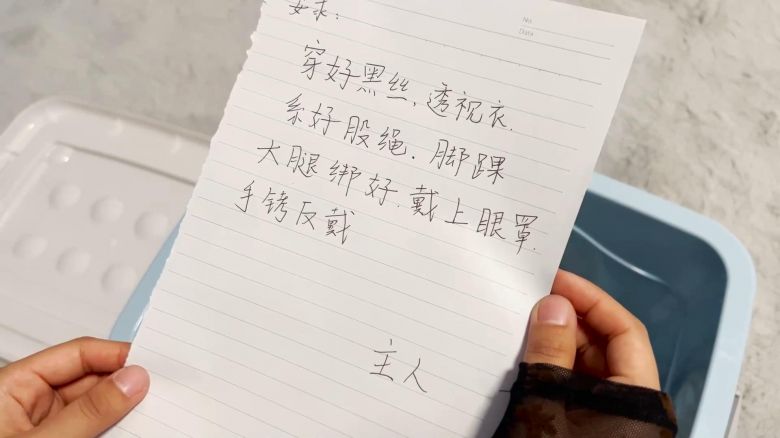 要求：
No.
Date
穿好黑丝，透视衣．
系好股绳．脚踝
大腿绑好．戴上眼罩．
手铐反戴
主人